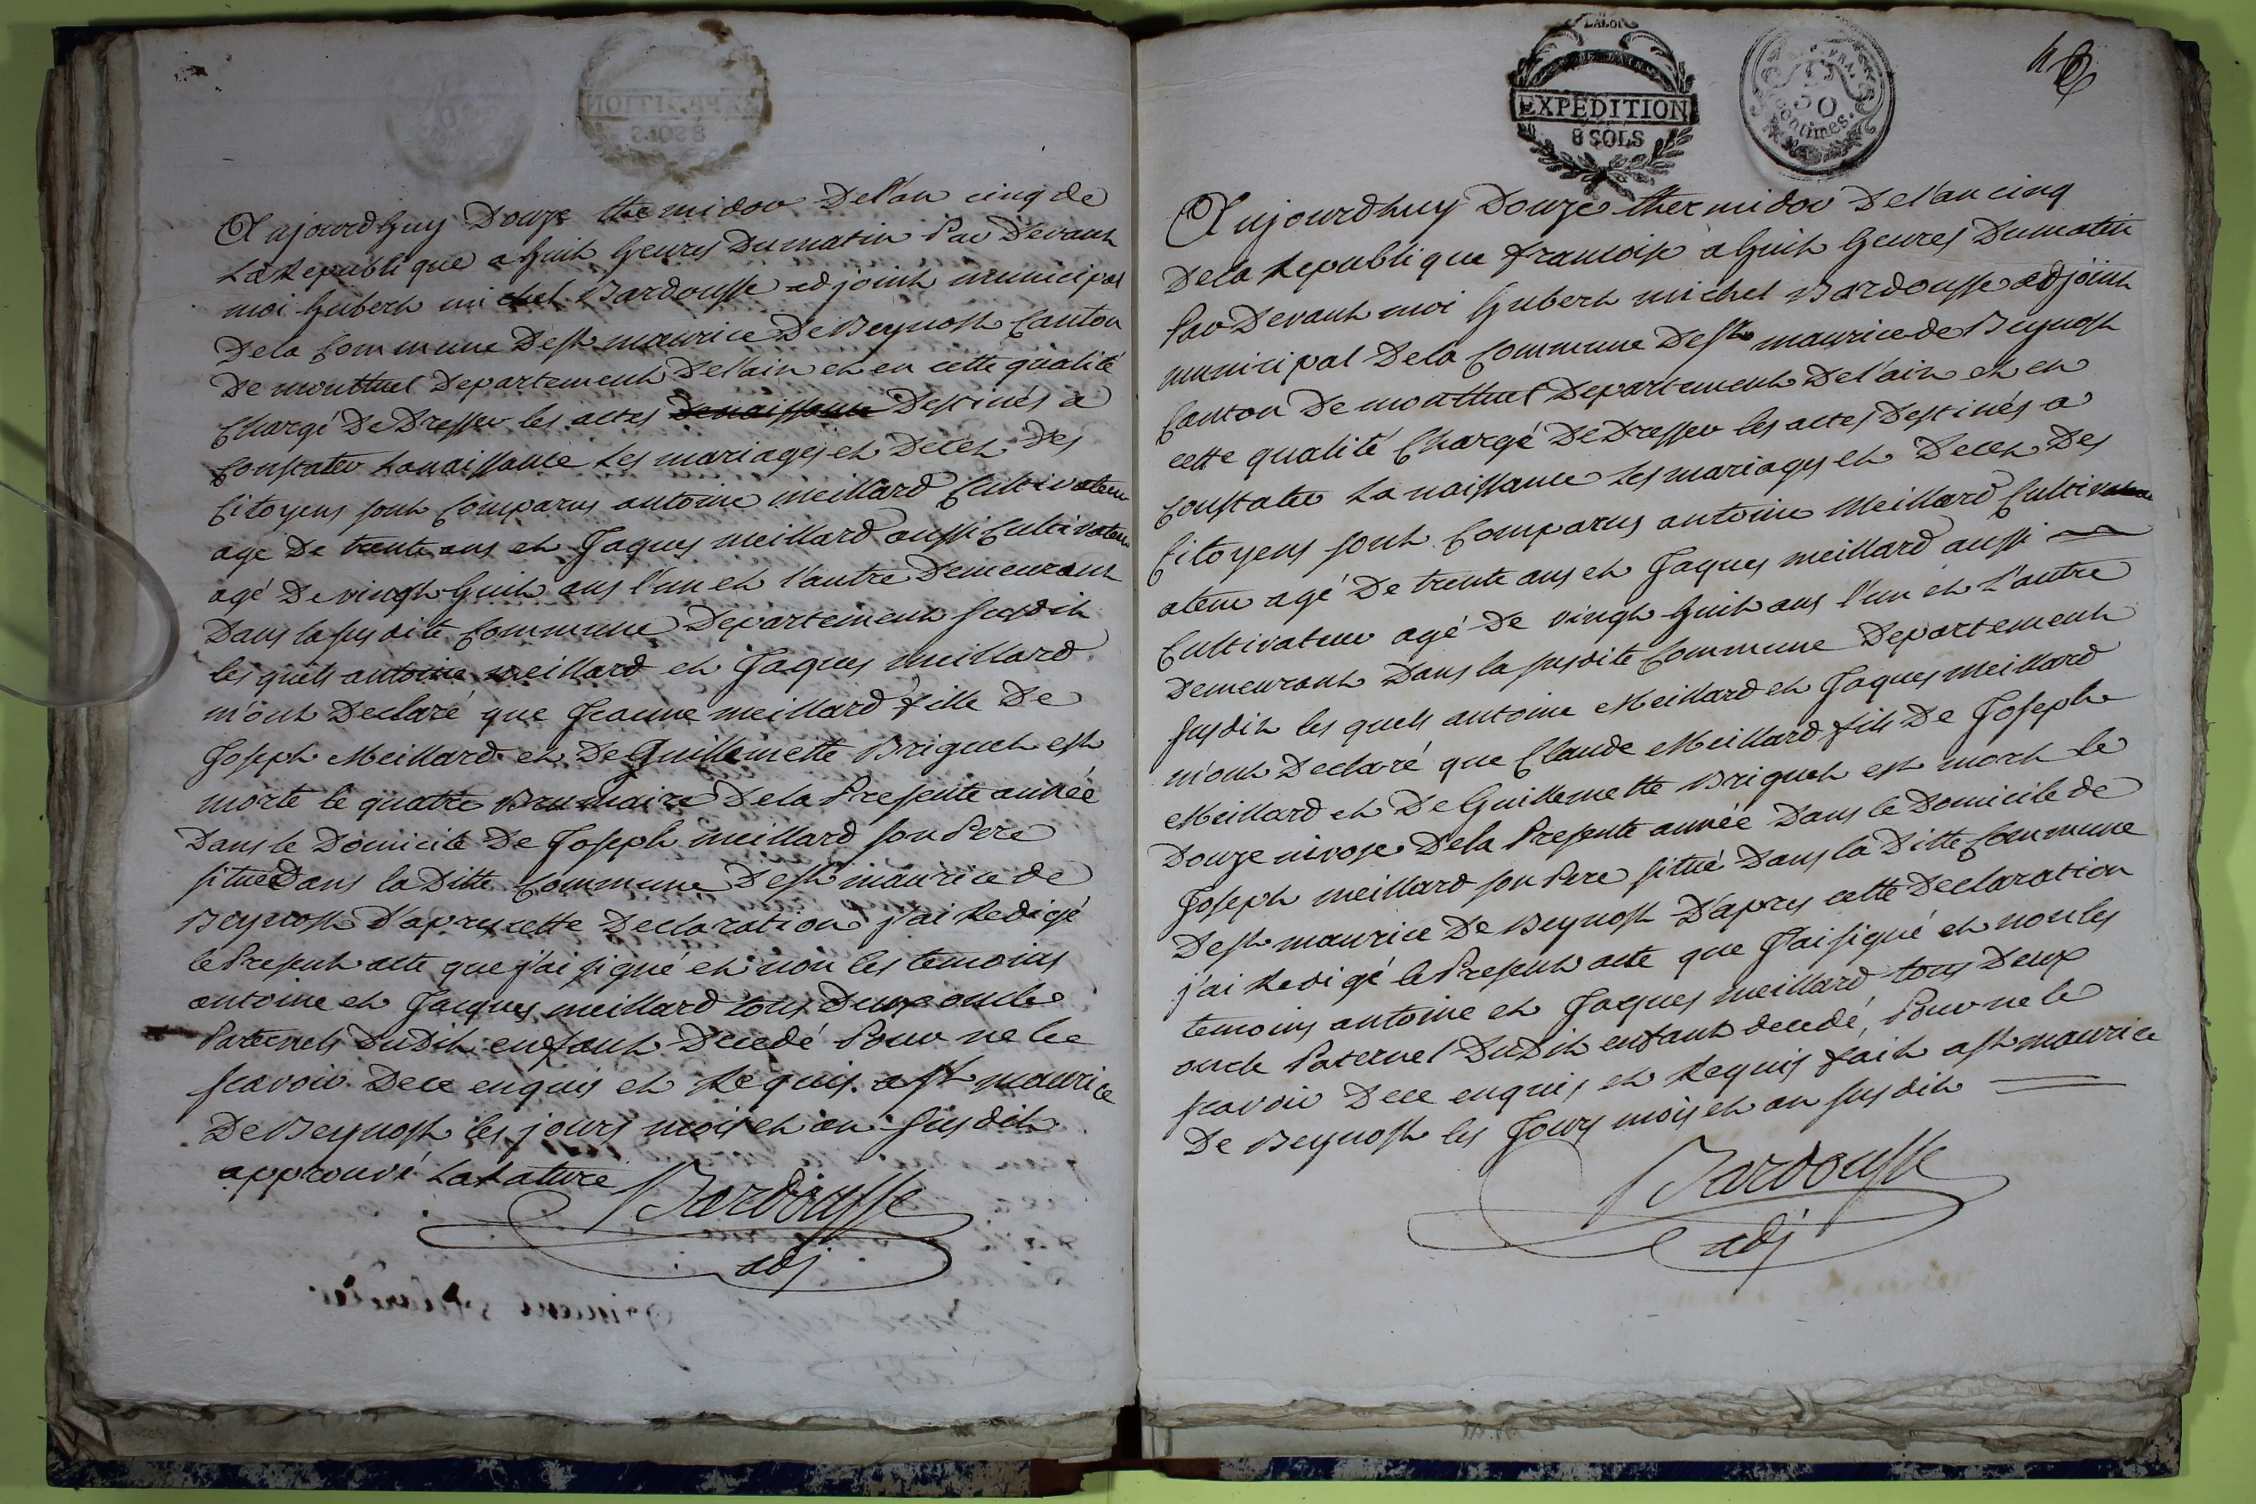 Aujourdhuy Douze thermidor Del'an cinq de
La Republique a huit heures Dumatin Par Devant
moi hubert michel Bardousse adjoint municipal
Dela Commune Dest maurice De Beynost Canton
De montluel Departement Del'ain et en cette qualité
Chargé De Dresser les actes Denaissance Destinés a
Constater Lanaissance Les mariages et Deces Des
Citoyens sont Comparus antoine meillard Cultivateur
agé De trente ans et Jaques meillard aussi Cultivateur
agé De vingt huit ans l'un et l'autre Demeurant
Dans la susdite Commune Departement susdit
les quels antoine meillard et Jaques meillard
m'ont Declaré que Jeanne meillard fille De
Joseph Meillard et De Guillemette Briguet est
morte le quatre Brumaire Dela Presente année
Dans le Domicile De Joseph meillard son Pere
situé Dans la Ditte Commune Dest maurice de
Beynost D'apres cette Declaration j'ai Redigé
le Present acte que j'ai signé et non les temoins
antoine et Jacques meillard tous Deux oncle
Paternels DuDit enfant Decedé Pour ne le
scavoir Dece enquis et Requis a st maurice
De Beynost les jours mois et an susdit
approuvé La Rature
Bardousse
adj
EXPEDITION
8 SOLS
50
Centimes.
Aujourdhuy Douze thermidor De l'an cinq
Dela Republique francoise a huit heures Dumatin
Par Devant moi hubert michel Bardousse adjoint
municipal Dela Commune Dest maurice de Beynost
Canton De montluel Departement De l'ain et en
cette qualité Chargé De Dresser les actes Destinés a
Constater La naissance Les mariages et Deces Des
Citoyens sont Comparus antoine Meillard Cultiv
ateur agé De trente ans et Jaques meillard aussi
Cultivateur agé De vingt huit ans l'un et L'autre
Demeurant Dans la susdite Commune Departement
susdit les quels antoine Meillard et Jaques Meillard
m'ont Declaré que Claude Meillard fils De Joseph
Meillard et De Guillemette Briguet est mort le
Douze nivose Dela Presente année Dans le Domicile de
Joseph meillard son Pere situé Dans la Ditte Commune
Dest maurice De Beynost D'apres cette Declaration
j'ai Redigé le Present acte que J'ai signé et non les
temoins antoine et Jaques meillard tous Deux
oncle Paternel DuDit enfant decedé, Pour ne le
scavoir Dece enquis, et Requis fait a st maurice
De Beynost les Jours mois et an susdit
Bardousse
adj